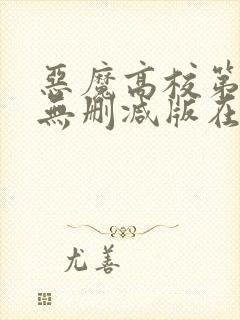 惡魔高校第
無刪減版在
尤善